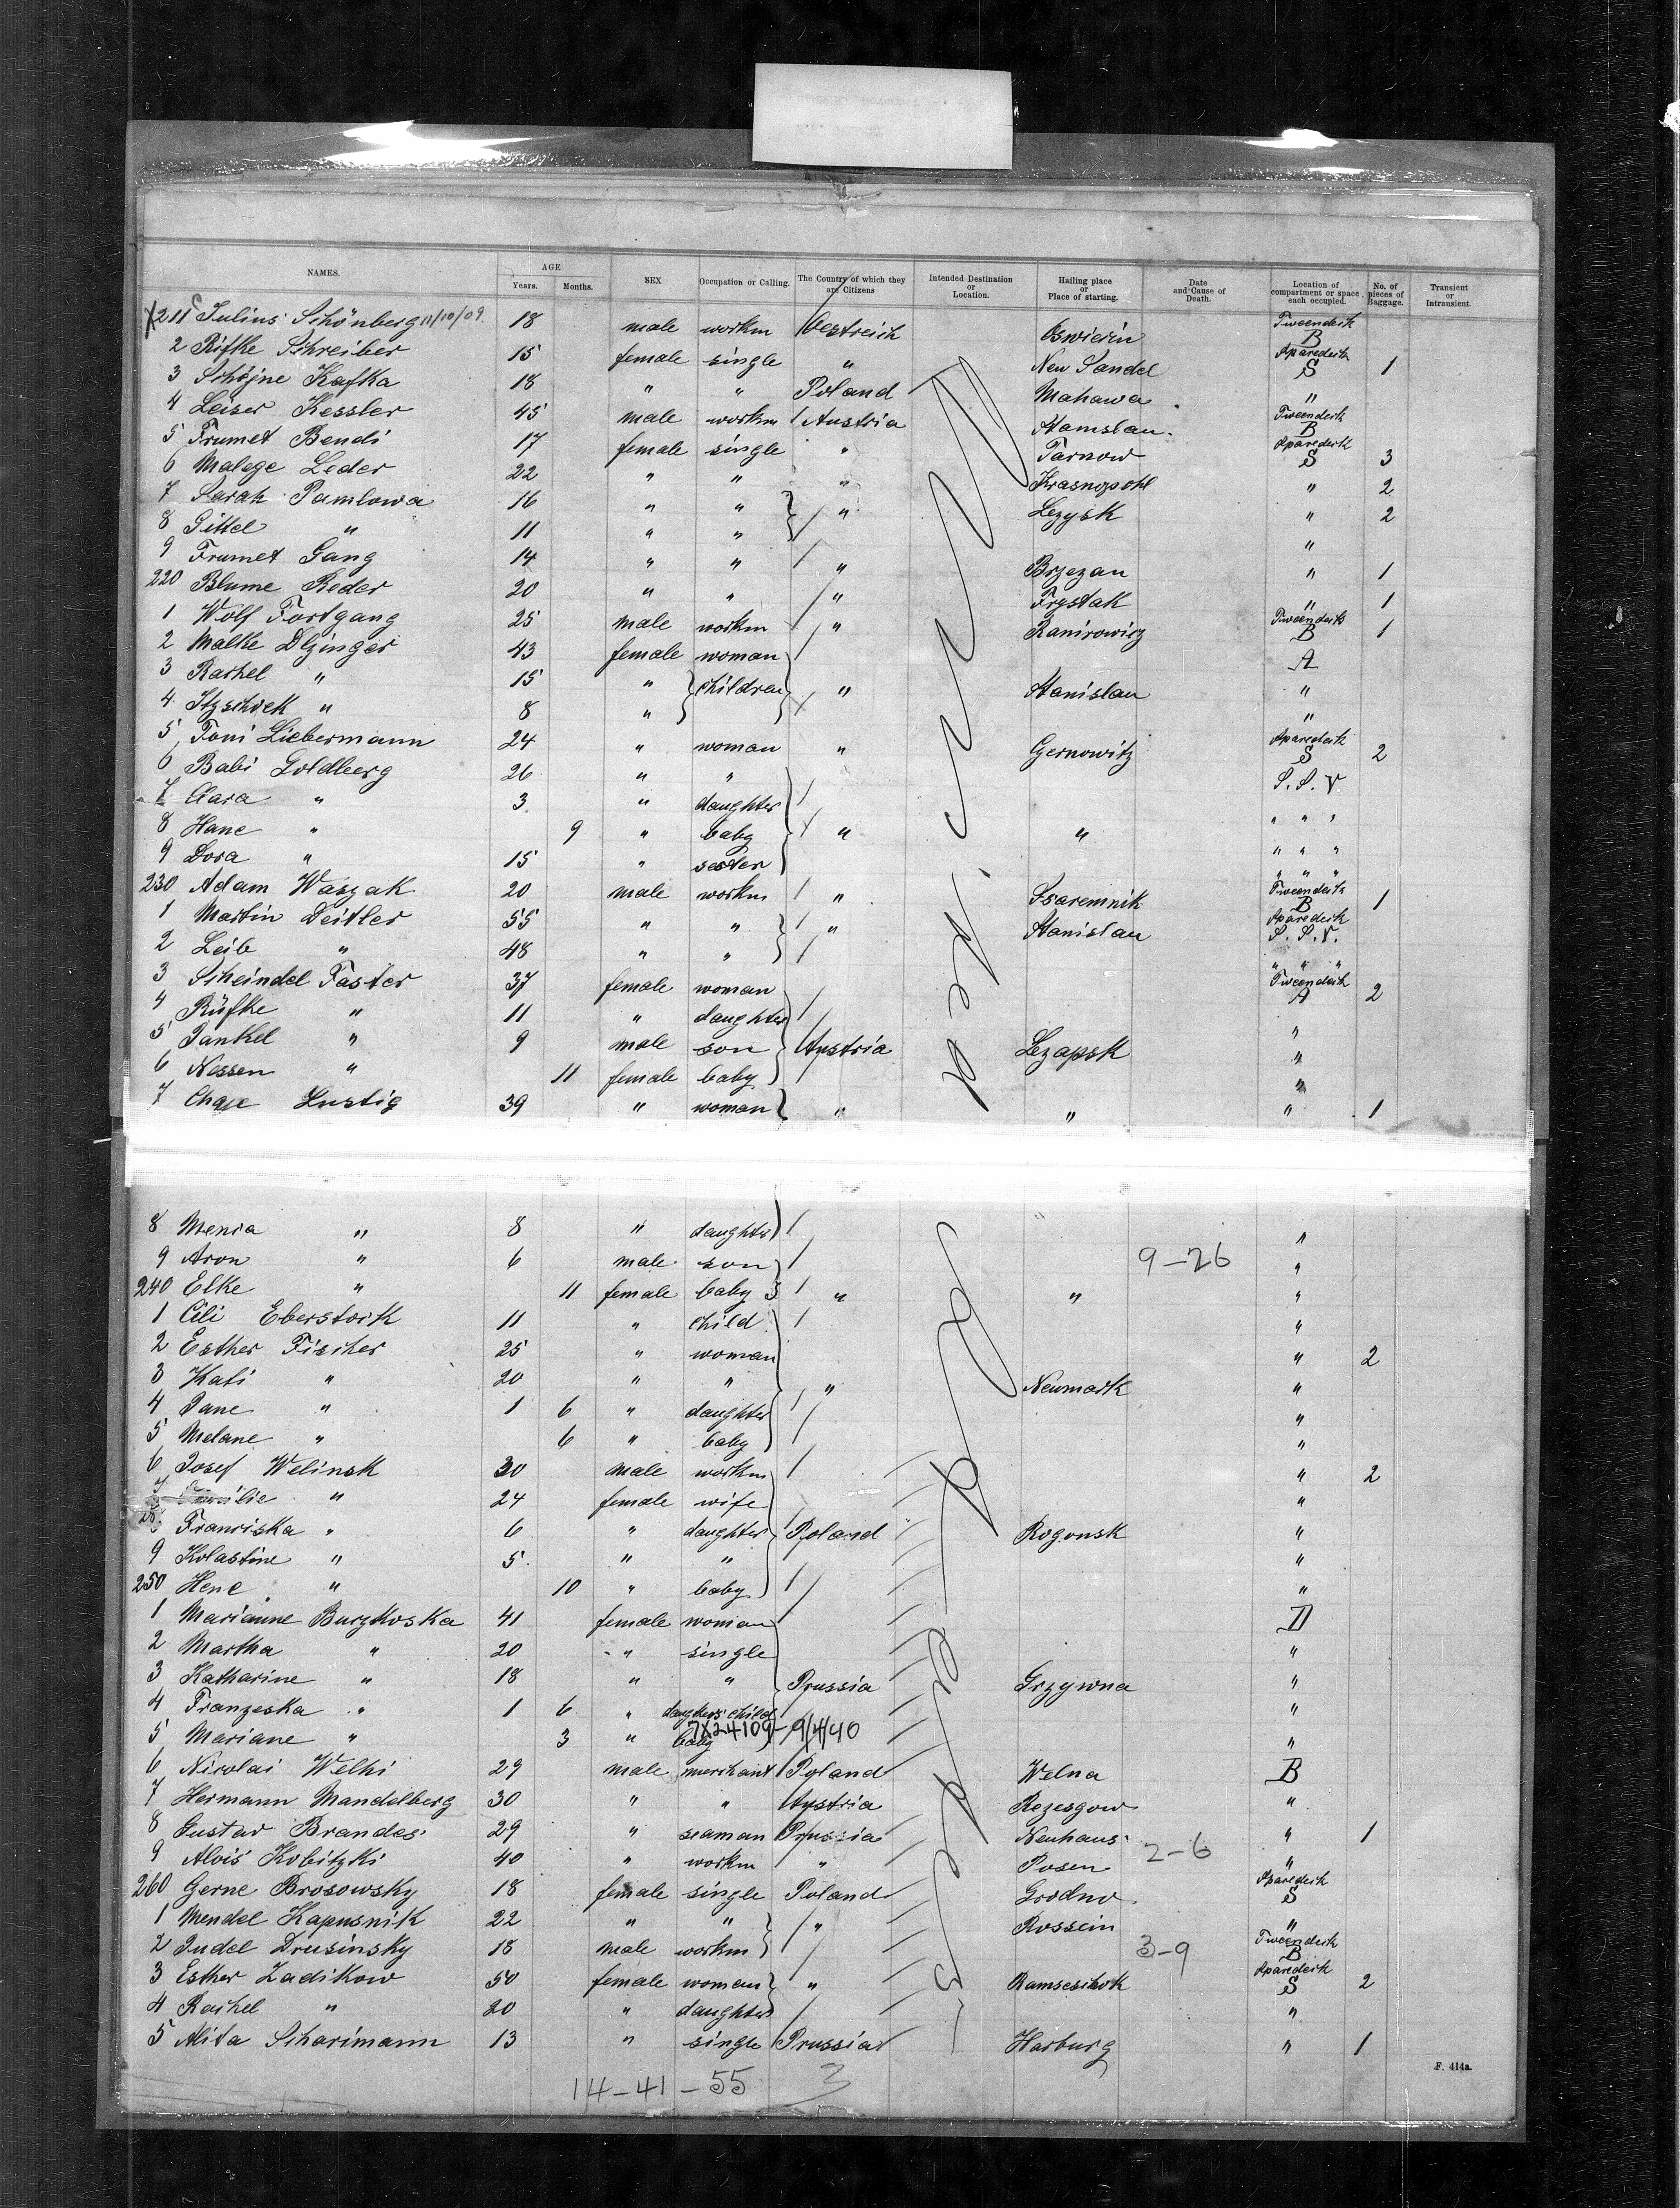 NAMES. AGE Years. Months. SEX Occupation or Calling. The Country of which they are Citizens Intended Destination or Location. Hailing place or Place of starting. Date and Cause of Death. Location of compartment or space each occupied. No. of pieces of Baggage. Transient or Intransient.
X 211 Julius Schönberg 11/10/09. 18 male workm Oestreich Oswiecin Tweendeck B
2 Rifke Schreiber 15 female single " New Sandel Sparedeck S 1
3 Schöjne Kafka 18 " " Poland Mahawa "
4 Leiser Kessler 45 male workm Austria Stamslau Tweendeck B
5 Frumet Bendi 17 female single " Tarnow Sparedeck S 3
6 Malege Leder 22 " " " Krasnopohl " 2
7 Sarah Pamlowa 16 " " " Lezysk " 2
8 Gittel " 11 " " "
9 Frumet Gang 14 " " " Brzezan " 1
220 Blume Reder 20 " " " Frystak " 1
1 Wolf Fortgang 25 male workm " Ranirowicz Tweendeck B 1
2 Malke Dlzinger 43 female woman A
3 Rachel " 15 " children " Stanislau "
4 Itzschock " 8 " "
5 Toni Liebermann 24 " woman " Czernowitz Sparedeck S 2
6 Babi Goldberg 26 " " S. S. V.
7 Clara " 3 " daughter " " "
8 Hane " 9 " baby " " " " "
9 Dora " 15 " sester " " "
230 Adam Waszak 20 male workm " Tsaremnik Tweendeck B 1
1 Martin Deitler 55 " " " Stanislau Sparedeck S. S. V.
2 Leib " 48 " " " " "
3 Scheindel Faster 37 female woman Tweendeck A 2
4 Rüfke " 11 " daughter "
5 Jankel " 9 male son Austria Lezapsk "
6 Nessen " 11 female baby "
7 Chaje Lustig 39 " woman " " " 1
8 Menia " 8 " daughter "
9 Aron " 6 male son 9-26 "
240 Elke " 11 female baby " " "
1 Cili Eberstork 11 " child "
2 Esther Fischer 25 " woman " 2
3 Kati " 20 " " " Neumark "
4 Jane " 1 6 " daughter "
5 Melane " 6 " baby "
6 Josef Welinsk 30 male workm " 2
7 " 24 female wife "
8 Franciska " 6 " daughter Poland Rogonsk "
9 Kolastine " 5 " " "
250 Hene " 10 " baby "
1 Marianne Burzkoska 41 female woman D
2 Martha " 20 " single "
3 Katharine " 18 " " Prussia Grzywna "
4 Franzeska " 1 6 " daughters' child "
5 Mariane " 3 " baby 7X24109-9/4/40 "
6 Nicolai Welhi 29 male merchant Poland Welna B
7 Hermann Mandelberg 30 " " Austria Rezesgow "
8 Gustav Brandes 29 " seaman Prussia Neuhaus " 1
9 Alois Kobitzki 40 " workm " Posen 2-6 "
260 Gerne Brosowsky 18 female single Poland Grodno Sparedeck S
1 Mendel Kapusnik 22 " " " Rossein "
2 Judel Drusinsky 18 male workm 3-9 Tweendeck B
3 Esther Zadikow 50 female woman " Ramseschok Sparedeck S 2
4 Rachel " 20 " daughter "
5 Alita Scharimann 13 " single Prussia Harburg " 1
14-41-55 3
F. 414a.